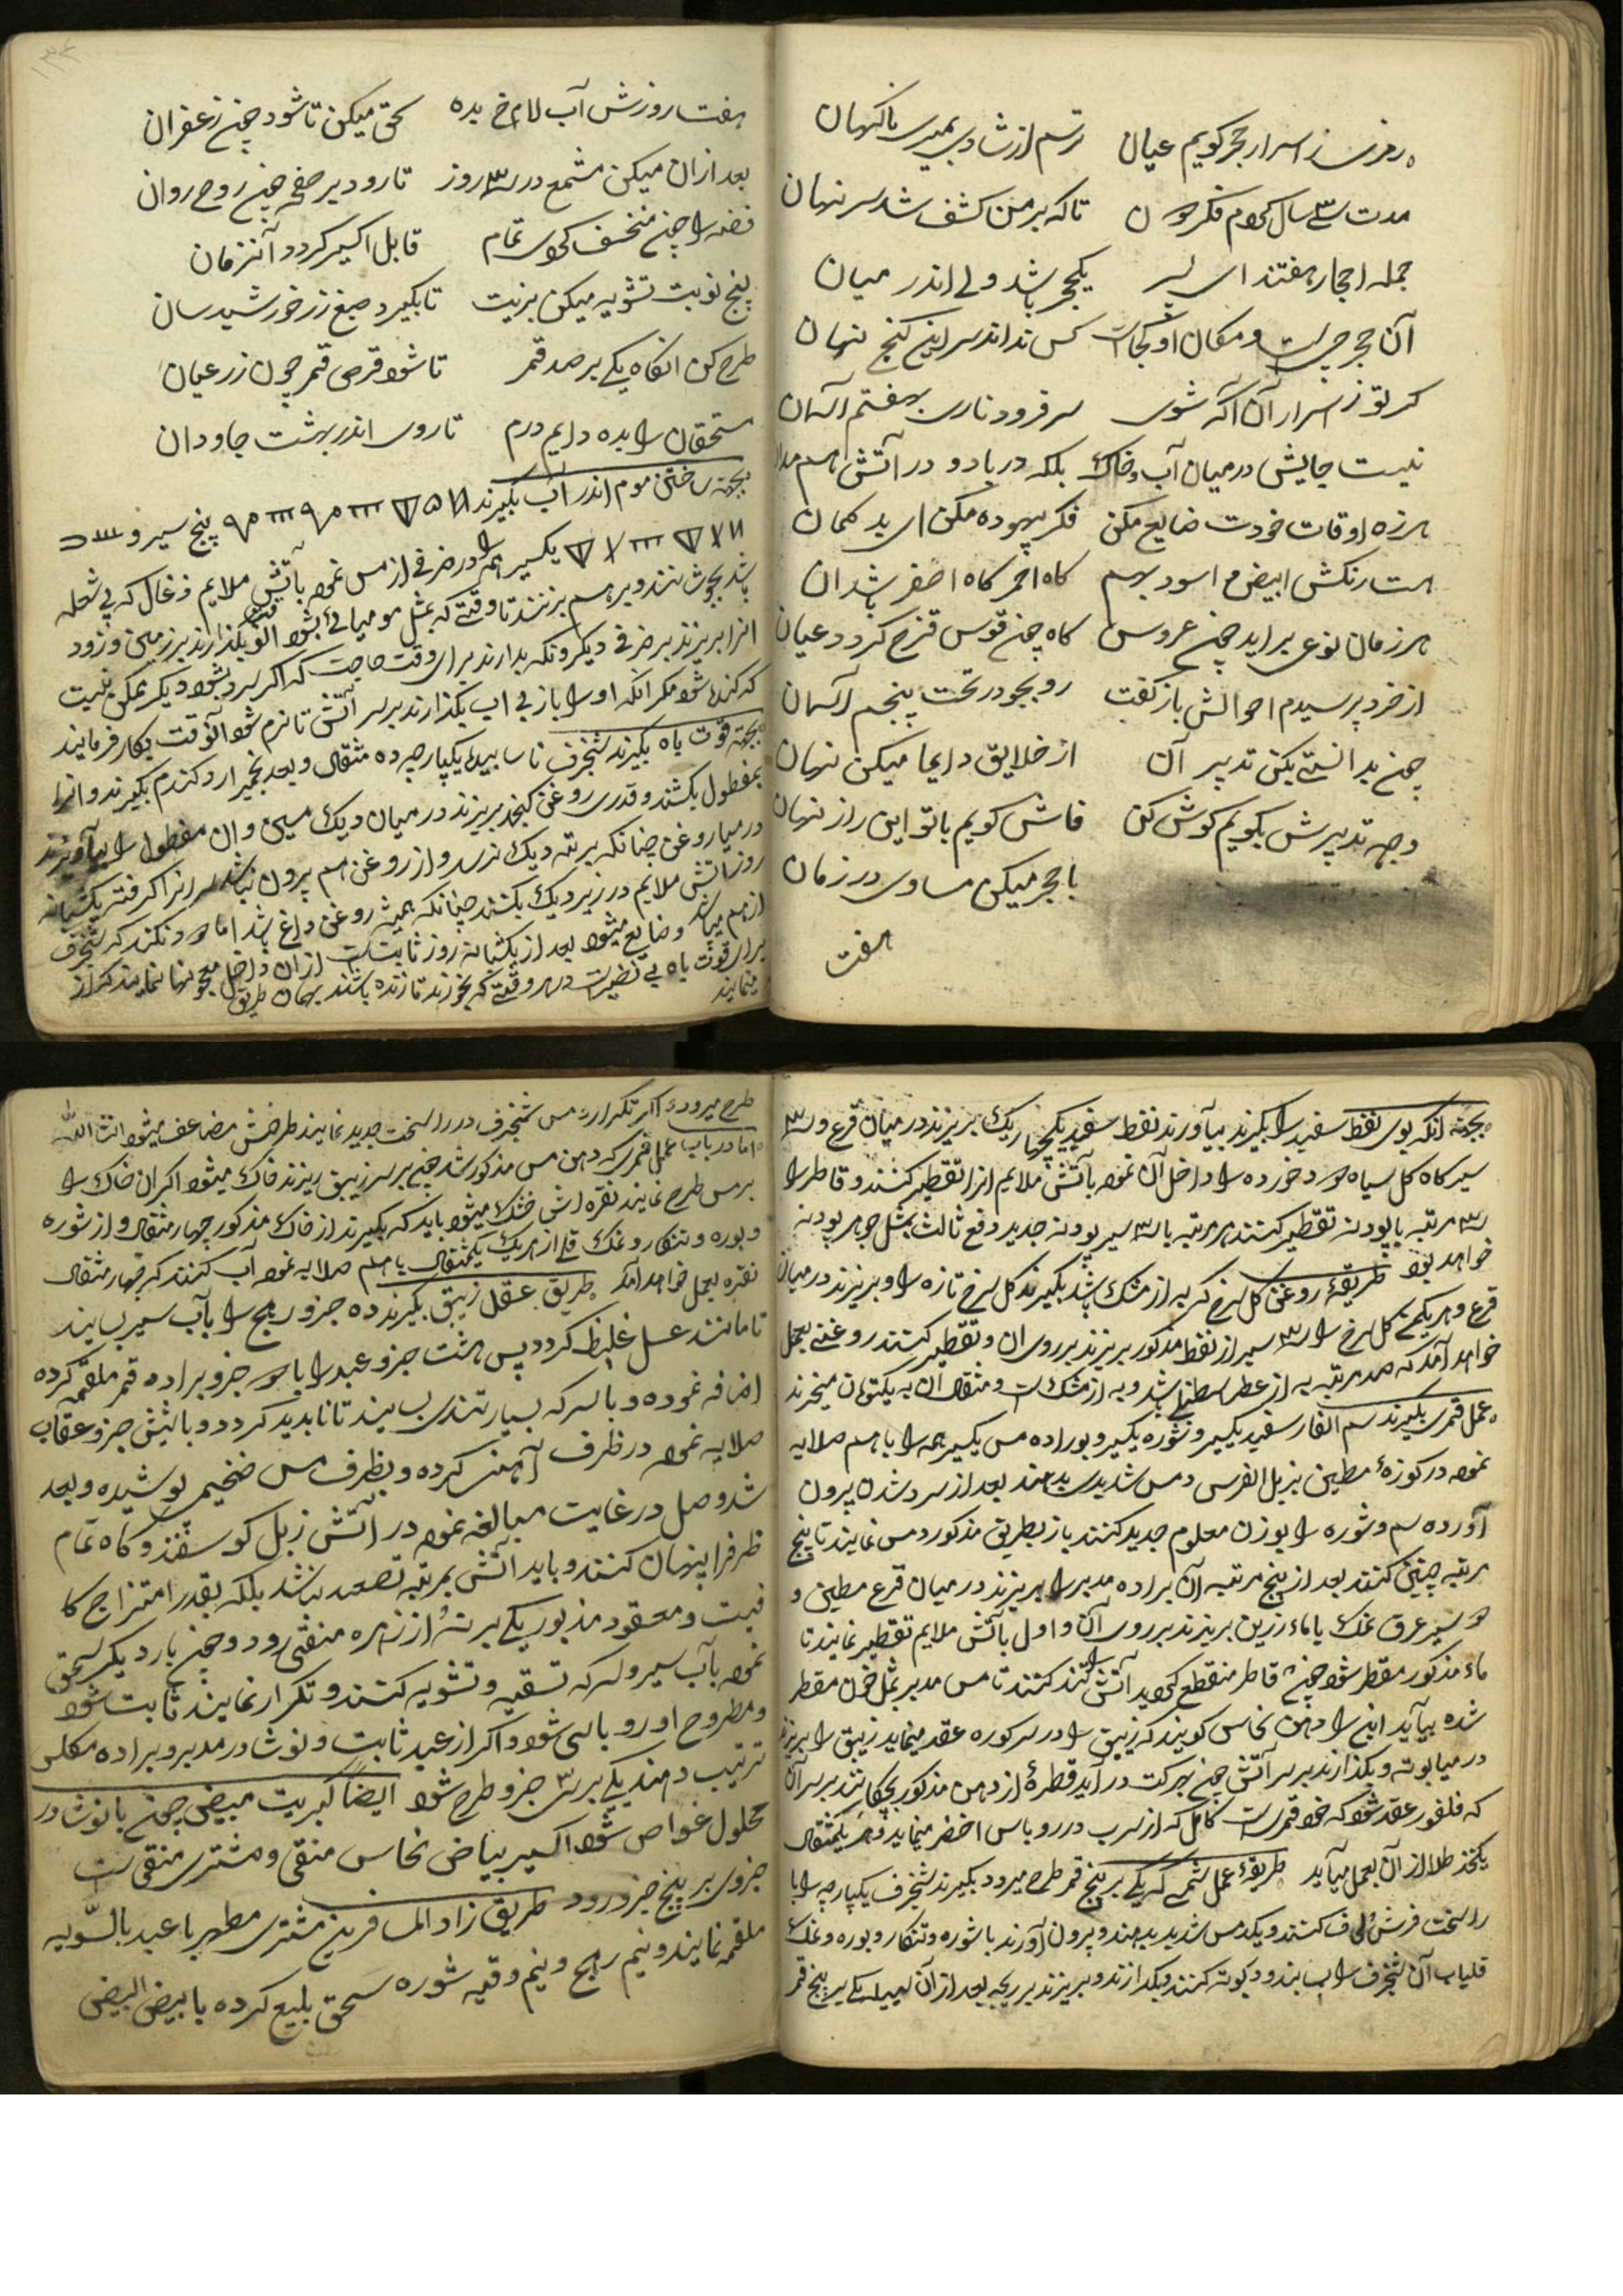 رمزی ز اسرار حجر گویم عیان ترسم از شادی بمیری ناکهان
مدت سی سال کردم فکر ان تا که بر من کشف شد سر نهان
جمله احجار هفتند ای پسر یکحجر باشد ولی اندر میان
آن حجر چیست و مکان او کجاست کس نداند سر این کنج نهان
کر تو ز اسرار آن آکه شوی سر فرود ناری بهفتم آسمان
نیست جایش در میان آب و خاک بلکه در باد و در آتش هم مدان
هرزه اوقات خودت ضایع مکن فکر بیهوده مکن ای بد کمان
هست رنکش ابیض و اسود بهم کاه احمر کاه اصفر باشد ان
هر زمان نوعی براید چون عروس کاه چون قوس قزح کردد عیان
از خرد پرسیدم احوالش باز کفت رو بجو در تحت پنجم آسمان
چون بدانستی بکن تدبیر آن از خلایق دایما میکن نهان
وجه تدبیرش بکویم کوش کن فاش کویم با تو این راز نهان
با حجر میکن مساوی در زمان
هفت
هفت روزش آب لام خ بده سحق میکن تا شود چون زعفران
بعد ازان میکن مشمع در سه روز تا رود بر صفحه چون روح روان
فضه را چون منخسف کردی تمام قابل اکسیر کردد آنزمان
پنج نوبت تشویه میکن بزیت تا بگیرد صبغ زر خورشید سان
طرح کن انکاه یکی بر صد قمر تا شود قرص قمر چون زر عیان
مستحقان را بده دایم درم تا روی اندر بهشت جاودان
بجهة ساختن موم اندر آب بگیرند پنج سیر و
یکسیر همه را در ظرفی از مس نموده بآتش ملایم زغال که بی شعله
باشد بجوشانند و برهم بزنند تا وقتی که بمثل مومیائی بشود انوقت بگذارند بر زمین و زود
انرا بریزند بر ظرفی دیگر و نکه بدارند برای وقت حاجت که اکر سرد بشود دیکر ممکن نیست
که کنده شود مکر آنکه او را باز بی اب بگذارند بر سر آتش تا نرم شود آنوقت بکار فرمایند
بجهة قوت باه بگیرند شنجرف ناساییده یکپارچه ده مثقال و بعد بخمیر ارد کندم بگیرند و انرا
بمفطول بکشند و قدری روغن کنجد بریزند در میان دیک مسین و ان مفطول را بیاویزند
در میان روغن چنانکه برته دیک نرسد و از روغن هم بیرون نباشد سر انرا کرفته یکشبانه
روز آتش ملایم در زیر دیک بکنند چنانکه همیشه روغن داغ باشد اما دود نکند که شنجرف
از هم میپاشد و ضایع میشود بعد از یکشبانه روز ثابت است ازان داخل معجونها نمایند که از
برای قوت باه بی نظیر است در هر وقتی که بخورند تا زنده باشند بهمان طریق
مینمایند
بجهة انکه بوی نفط سفید را بگیرند بیاورند نفط سفید یکچهار یک بریزند در میان قرع و سه
سیر کاه کل سیاه خورده را داخل آن نموده بآتش ملایم انرا تقطیر کنند و قاطر را
سه مرتبه با پودنه تقطیر کنند هر مرتبه با سه سیر پودنه جدید دفع ثالث بمثل جوهر پودنه
خواهد بود طریقهٔ روغن کل سرخ که به از مشک باشد بگیرند کل سرخ تازه را و بریزند در میان
قرع و هر یکمن کل سرخ را سه سیر از نفط مذکور بریزند بر روی ان و تقطیر کنند روغنی بعمل
خواهد آمد که صد مرتبه به از عطر سطنبلی باشد و به از مشک است و مثقال ان به یکتومان میخرند
عمل قمری بگیرند سم الفار سفید یکسیر و شوره یکسیر و بوراده مس یکسیر همه را باهم صلایه
نموده در کوزهٔ مطین بزبل الفرس دمس شدید بدهند بعد از سرد شدن بیرون
آورده سم و شوره را بوزن معلوم جدید کنند باز بطریق مذکور دمس نمایند تا پنج
مرتبه چنین کنند بعد از پنج مرتبه آن براده مدبر را بریزند در میان قرع مطین و
سیر عرق نمک یا ماء رزین بریزند بر روی آن و اول بآتش ملایم تقطیر نمایند تا
ماء مذکور مقطر شود چون قاطر منقطع کردید آتش را تند کنند تا مس مدبر بمثل خون مقطر
شده بیآید این را دهن نحاس کویند که زیبق را در سر کوره عقد مینماید زیبق را بریزند
در میان بوته و بگذارند بر سر آتش چون بحرکت درآید قطرهٔ از دهن مذکور بچکانند بر سر آن
که فلفور عقد شود که خود قمر است کامل که از سرب در روباس اخضر مینماید و هر یکمثقال
یکنخد طلا از آن بعمل میآید طریقهٔ عمل شمسی که یکی بر پنج قمر طرح میرود بگیرند شنجرف یکپارچه را با
راسخت فرش و لحاف کنند و یکدمس شدید بدهند و بیرون آورند با شوره و تنکار و بوره و نمک
قلیاب آن شنجرف را بسایند و در بوته کنند و بگدازند و بریزند بر ریجه بعد از آن یکی بر پنج قمر
طرح میرود و اکر تکرار دمس شنجرف در راسخت جدید نمایند طرحش مضاعف میشود انشاء الله
اما در باب عمل قمری که دهن مس مذکور شد چون بر سر زیبق ریزند خاک میشود اکر ان خاک را
بر مس طرح نمایند نقره اش خشک میشود باید که بگیرند از خاک مذکور چهار مثقال و از شوره
و بوره و تنکار و نمک قلی از هر یک یکمثقال باهم صلایه نموده آب کنند که چهار مثقال
نقره بعمل خواهد آمد طریق عقل زیبق بگیرند ده جزو ریح را بآب سیر بسایند
تا مانند عسل غلیظ کردد پس هشت جزو عبد را با جزو براده قمر ملقمه کرده
اضافه نموده و با سرکه بسیار تند بسایند تا نابدید کردد و با شش جزو عقاب
صلایه نموده در ظرف آهنی کرده و بظرف مس ضخیم پوشیده و بعد
شد وصل در غایت مبالغه نموده در آتش زبل کوسفند و کاه تمام
ظرفرا پنهان کنند و باید آتش بمرتبه تصعید نباشد بلکه بقدر امتزاج کا
فیست و معقود مذبور یکی بر نه از زهره منقی رود و چون بار دیکر سحق
نموده بآب سیر و سرکه تسقیه و تشویه کنند و تکرار نمایند ثابت شود
و مطروح او روباسی شود و اکر از عبد ثابت و نوشادر مدبر و براده مکلس
ترتیب دهند یکی بر سی جزو طرح شود ایضاً کبریت مبیض چون با نوشادر
محلول غواص شود اکسیر بیاض نحاس منقی و مشتری منقی است
جزوی بر پنج جزو رود طریق زاد المسافرین مشتری مطهر با عبد بالسّویه
ملقمه نمایند و نیم ریح و نیم وقیه شوره سحق بلیغ کرده با بیض البیض